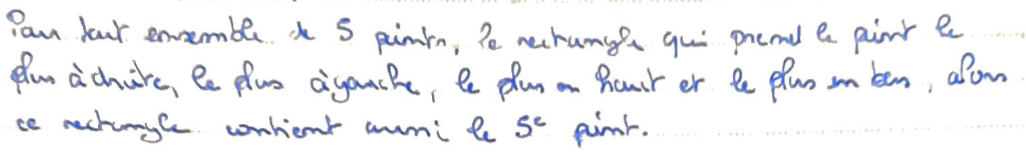 Pour tout ensemble de 5 points, le rectangle qui prend le point le
plus à droite, le plus à gauche, le plus en haut et le plus en bas, alors
ce rectangle contient aussi le 5e point.